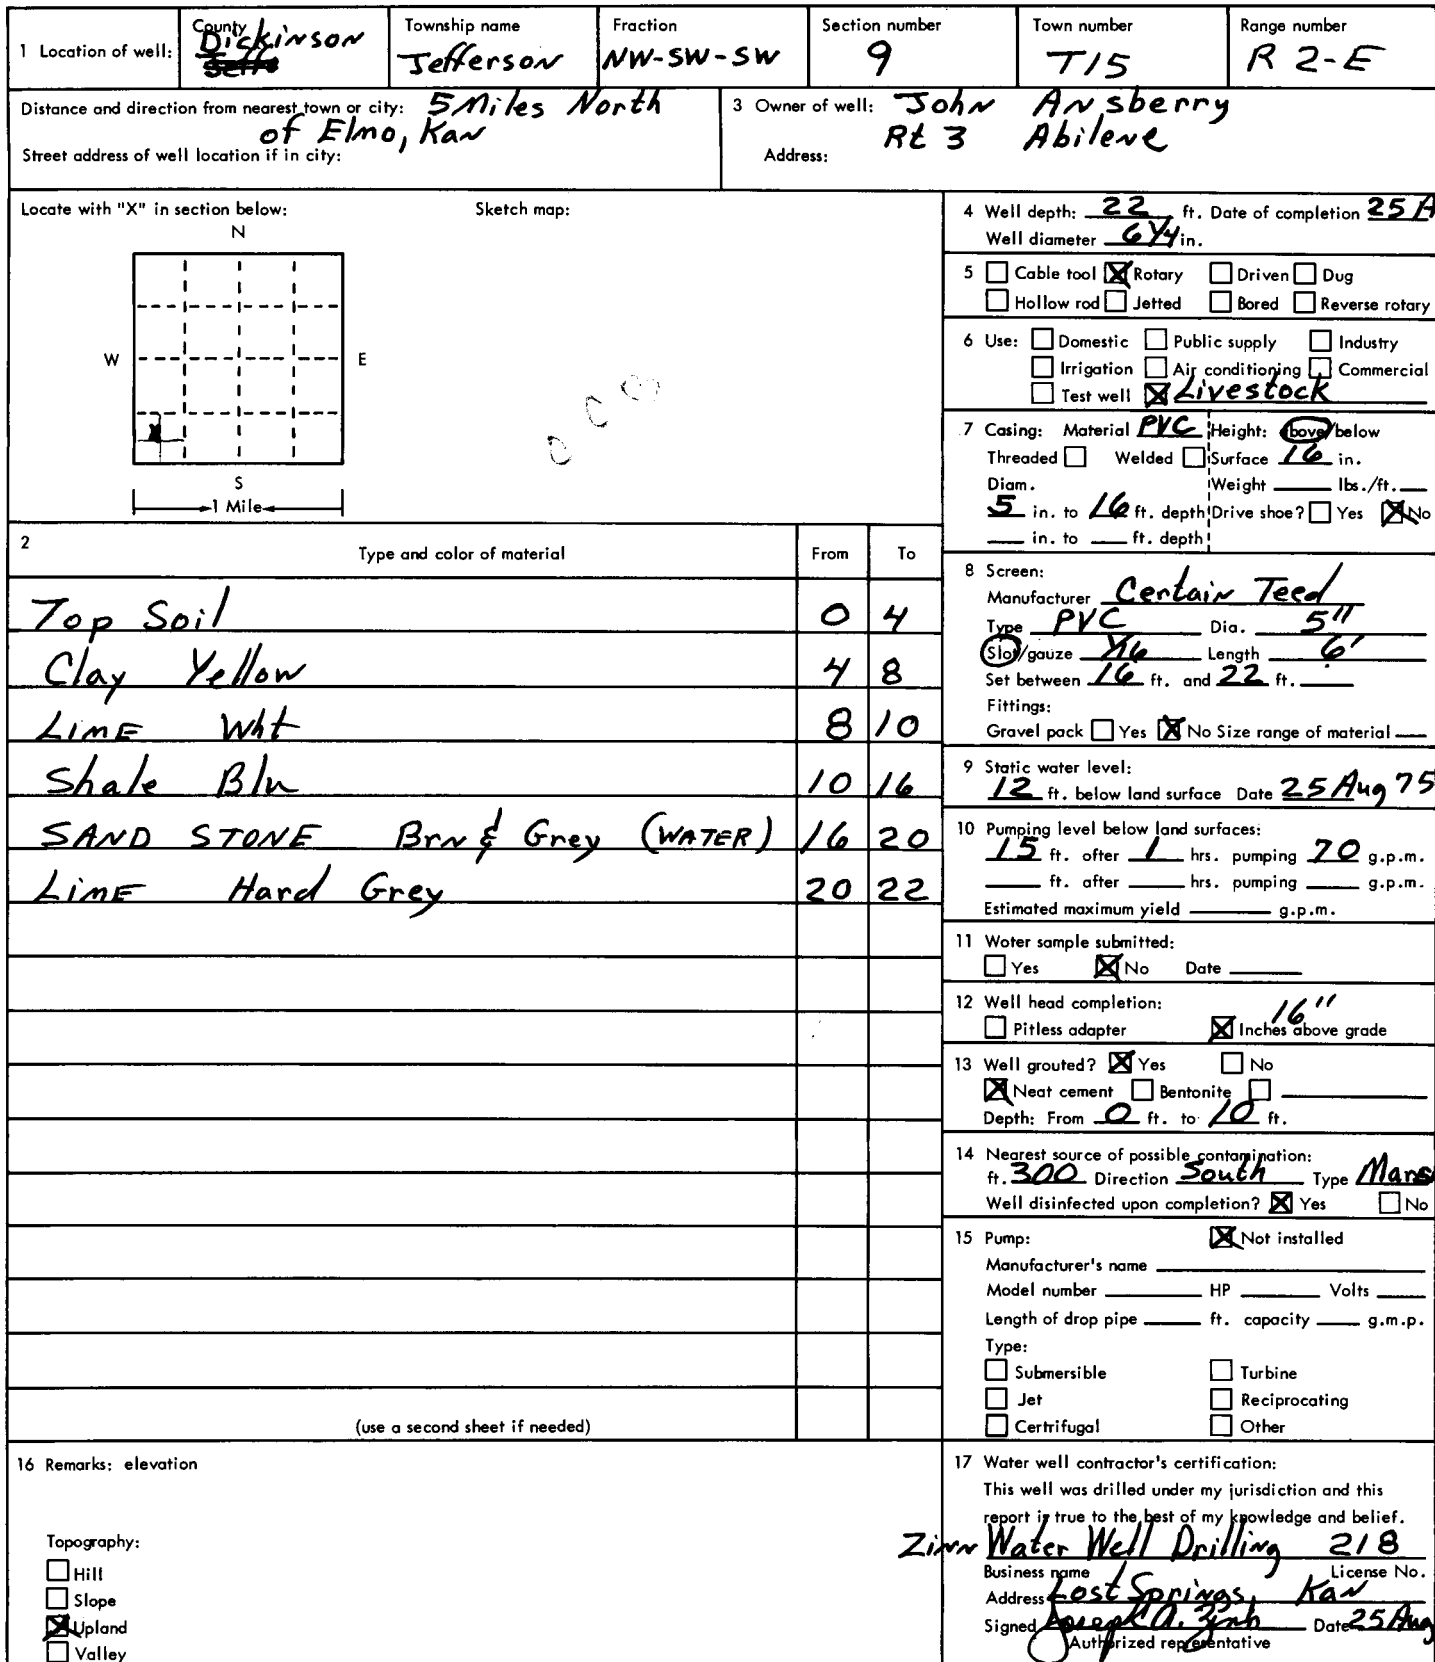 1 Location of well:
County Dickinson
Township name Jefferson
Fraction NW-SW-SW
Section number 9
Town number T15
Range number R 2-E
Distance and direction from nearest town or city: 5 Miles North
of Elmo, Kan
Street address of well location if in city:
3 Owner of well: John Ansberry
Rt 3 Abilene
Address:
Locate with "X" in section below:
Sketch map:
N
W E
X
S
1 Mile
2 Type and color of material From To
Top Soil 0 4
Clay Yellow 4 8
LIME Wht 8 10
Shale Blu 10 16
SAND STONE Brn & Grey (WATER) 16 20
LIME Hard Grey 20 22
(use a second sheet if needed)
4 Well depth: 22 ft. Date of completion 25 A
Well diameter 6 1/4 in.
5 Cable tool X Rotary Driven Dug
Hollow rod Jetted Bored Reverse rotary
6 Use: Domestic Public supply Industry
Irrigation Air conditioning Commercial
Test well X Livestock
7 Casing: Material PVC Height: above/below
Threaded Welded Surface 16 in.
Diam. Weight lbs./ft.
5 in. to 16 ft. depth Drive shoe? Yes X No
in. to ft. depth
8 Screen:
Manufacturer Certain Teed
Type PVC Dia. 5"
Slot/gauze 1/16 Length 6'
Set between 16 ft. and 22 ft.
Fittings:
Gravel pack Yes X No Size range of material
9 Static water level:
12 ft. below land surface Date 25 Aug 75
10 Pumping level below land surfaces:
15 ft. after 1 hrs. pumping 70 g.p.m.
ft. after hrs. pumping g.p.m.
Estimated maximum yield g.p.m.
11 Woter sample submitted:
Yes X No Date
12 Well head completion:
16"
Pitless adapter X Inches above grade
13 Well grouted? X Yes No
X Neat cement Bentonite
Depth: From 0 ft. to 10 ft.
14 Nearest source of possible contamination:
ft. 300 Direction South Type Mars
Well disinfected upon completion? X Yes No
15 Pump: X Not installed
Manufacturer's name
Model number HP Volts
Length of drop pipe ft. capacity g.m.p.
Type:
Submersible Turbine
Jet Reciprocating
Certrifugal Other
16 Remarks: elevation
Topography:
Hill
Slope
X Upland
Valley
17 Water well contractor's certification:
This well was drilled under my jurisdiction and this
report is true to the best of my knowledge and belief.
Zinn Water Well Drilling 218
Business name License No.
Address Lost Springs, Kan
Signed Joseph A. Zinn Date 25 Aug
Authorized representative